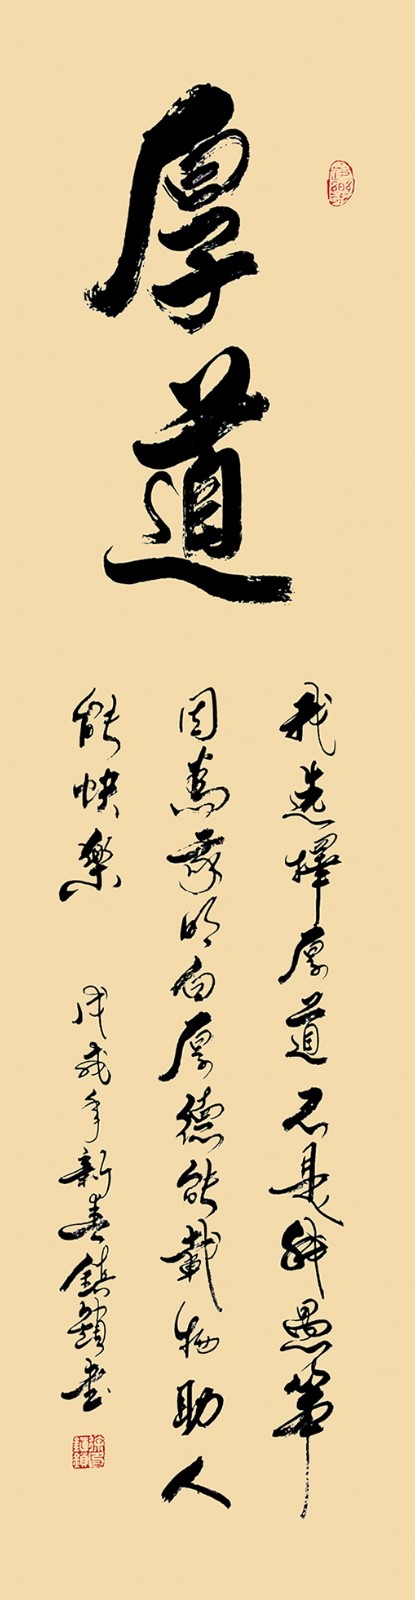 厚道
我選擇厚道不是我愚笨
因為我明白厚德能載物助人
能快樂
戊戌年新春鎮書